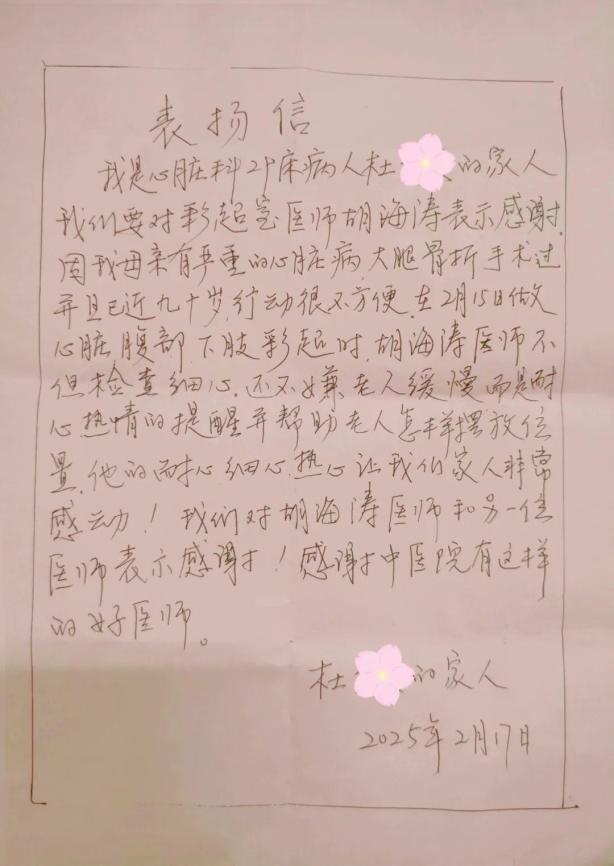 表扬信
我是心脏科29床病人杜 的家人
我们要对彩超室医师胡海涛表示感谢.
因我母亲有严重的心脏病,大腿骨折手术过
并且已近九十岁,行动很不方便.在2月15日做
心脏,腹部,下肢彩超时.胡海涛医师不
但检查细心.还不嫌老人缓慢而是耐
心热情的提醒并帮助老人怎样摆放位
置.他的耐心细心.热心让我们家人非常
感动!我们对胡海涛医师和另一位
医师表示感谢!感谢中医院有这样
的好医师。
杜 的家人
2025年2月17日